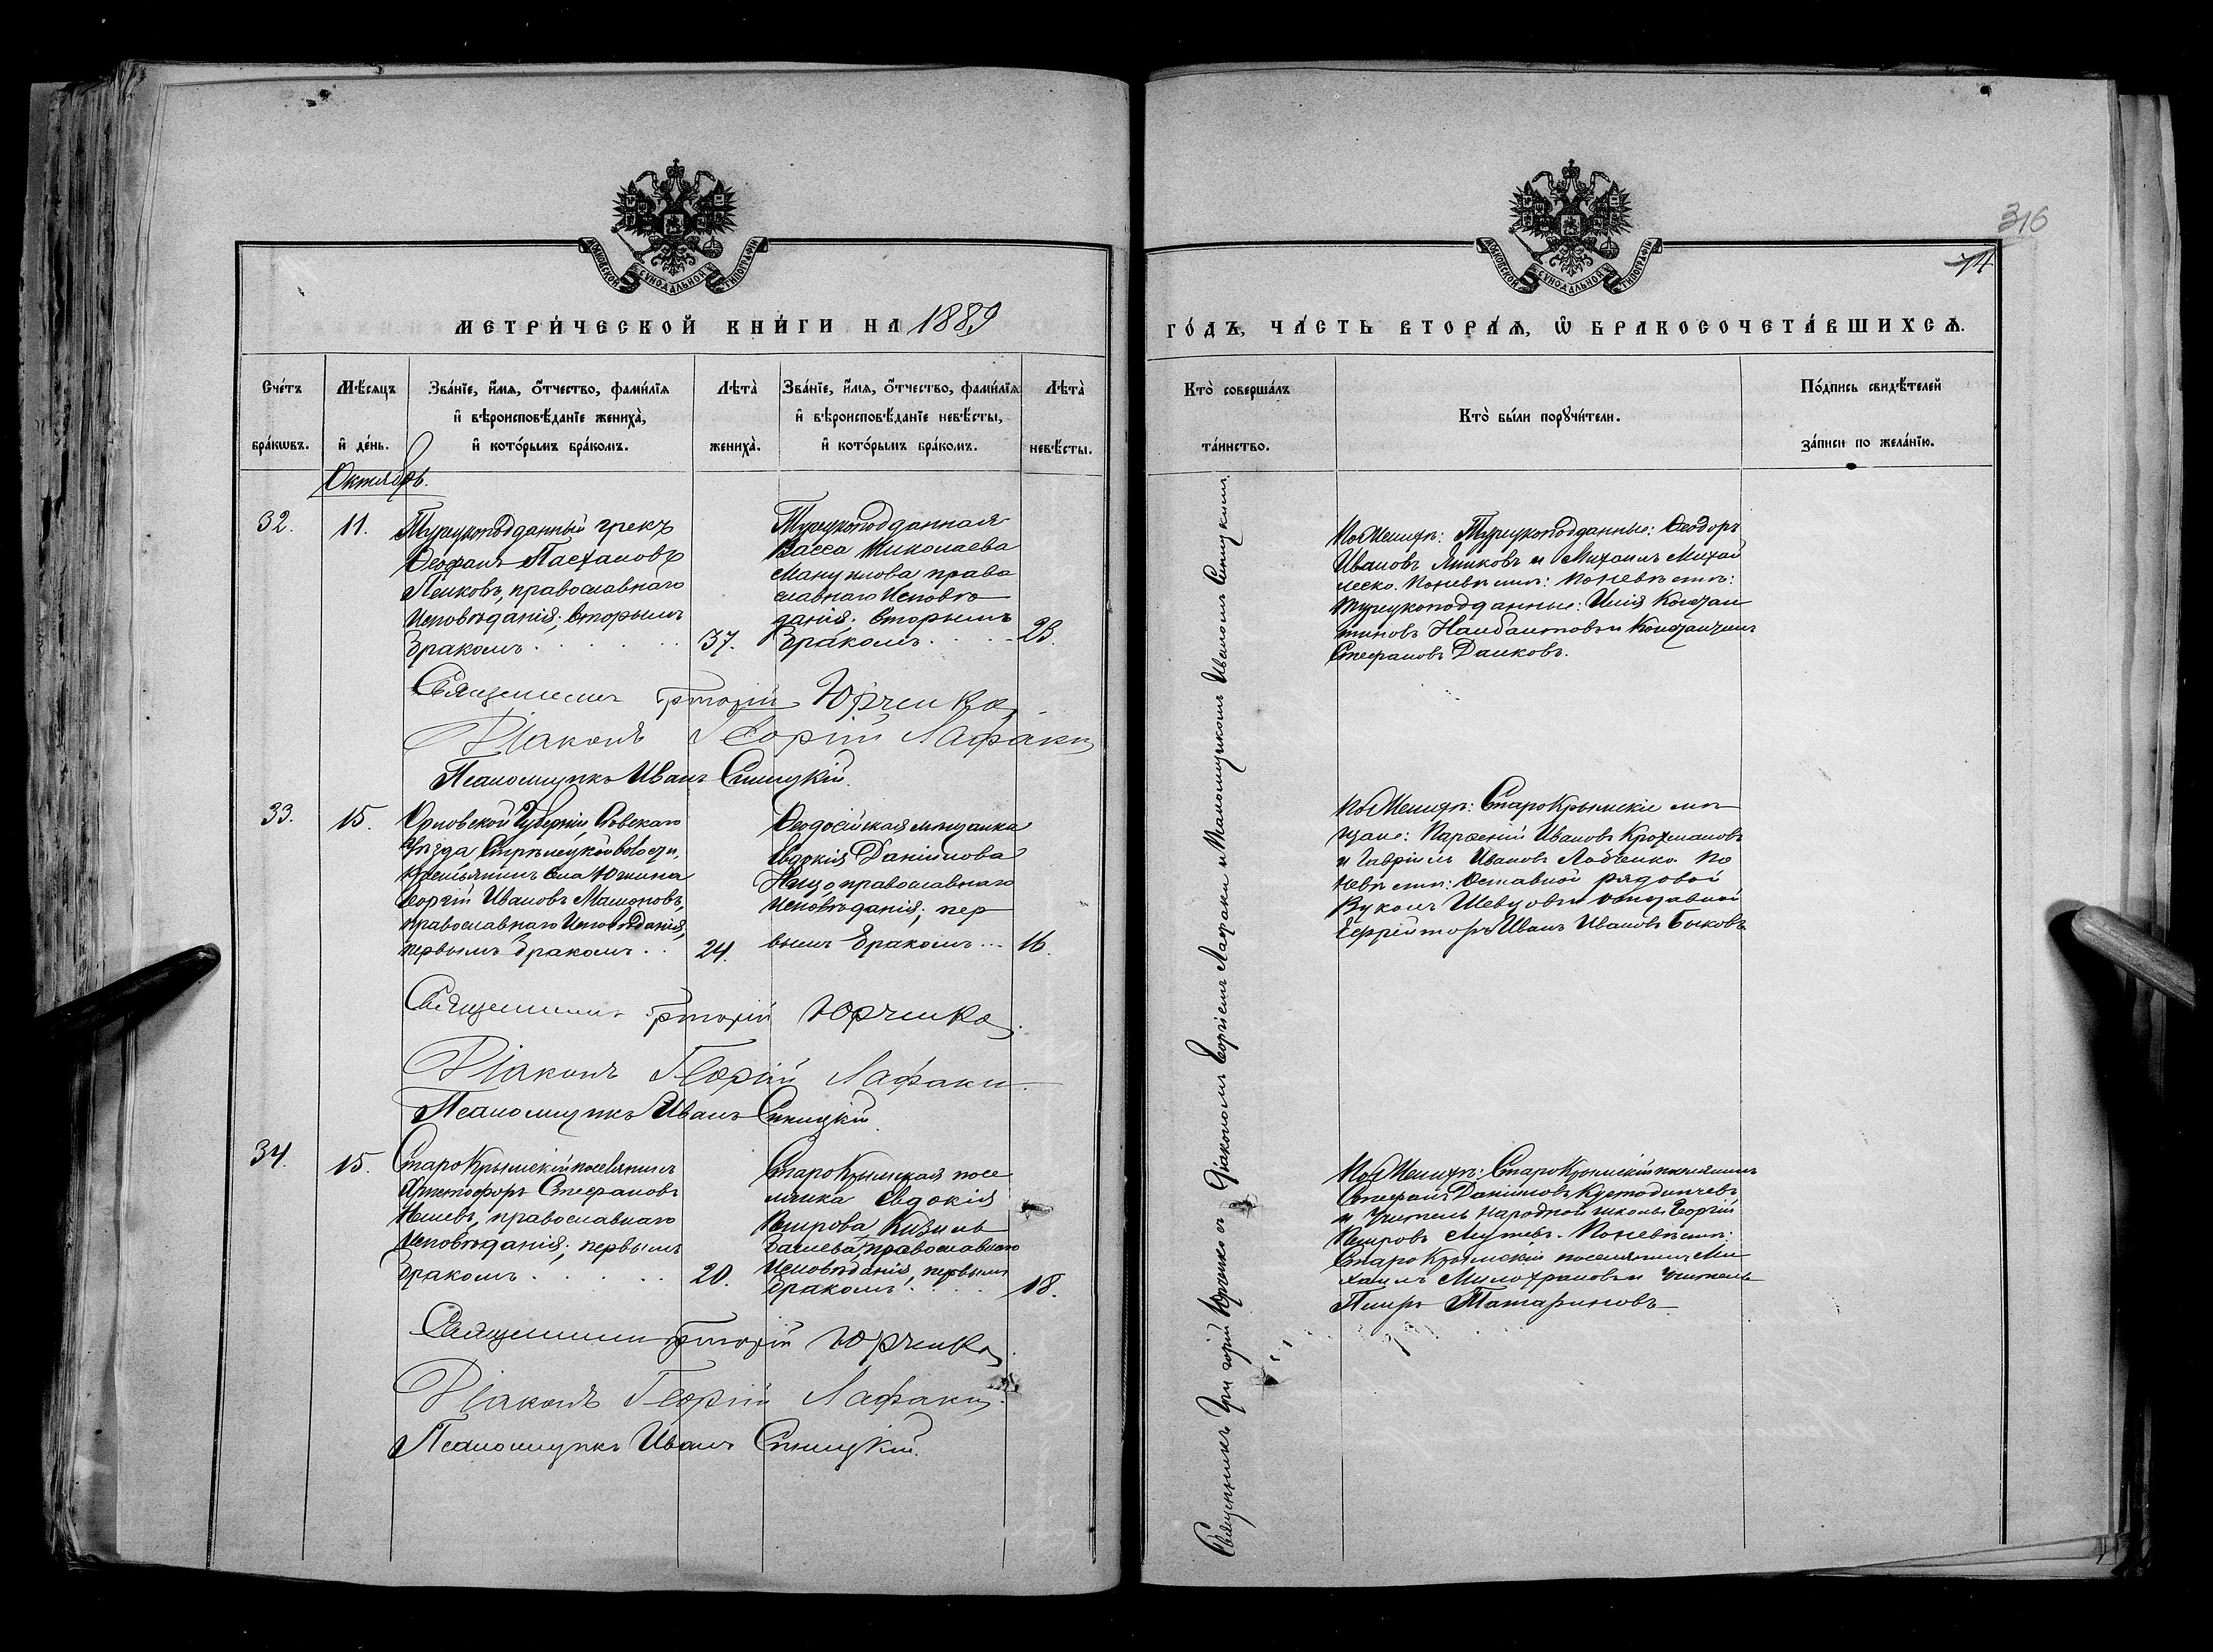 МОСКОВСКОЙ СУНОДАЛЬНОЙ ТИПОГРАФІИ
МЕТРИ́ЧЕСКОЙ КНИ́ГИ НА 1889
Сче́тъ бра́кωвъ.
Мѣ́сяцъ и҆ де́нь.
Зва́нїе, и҆́мя, ѻ҆́тчество, фами́лїя
и҆ вѣроисповѣ́данїе жениха̀,
и҆ кото́рымъ бра́комъ.
Лѣта̀ жениха̀.
Зва́нїе, и҆́мя, ѻ҆́тчество, фами́лїя
и҆ вѣроисповѣ́данїе невѣ́сты,
и҆ кото́рымъ бра́комъ.
Лѣта̀ невѣ́сты.
Октябрь.
32.
11.
Турецкоподданный грекъ
Ѳеофанъ Пасхаловъ
православнаго
исповѣданія; вторымъ
бракомъ . . . . .
37.
Турецкоподданная
Васса Николаева
Манулова право
славнаго исповѣ
данія; вторымъ
бракомъ . . . .
23.
Священникъ Григорій Юрченко
Діаконъ Георгій Лафаки
Псаломщикъ Иванъ Синицкій.
33.
15.
Орловской Губерніи Сѣвскаго
Уѣзда Стрѣлецкой волости,
крестьянинъ села Юшина
Георгій Ивановъ Мамоновъ,
православнаго исповѣданія,
первымъ бракомъ . .
24.
Ѳеодосійская мѣщанка
Евдокія Даніилова
православнаго
исповѣданія; пер
вымъ бракомъ ...
16.
Священникъ Григорій Юрченко
Діаконъ Георгій Лафаки
Псаломщикъ Иванъ Синицкій.
34.
15.
Старокрымскій поселянинъ
Христофоръ Стефановъ
православнаго
исповѣданія; первымъ
бракомъ . . . . .
20.
Старокрымская посе
лянка Евдокія
Петрова Кизиль
башева, православнаго
исповѣданія, первымъ
бракомъ . . . .
18.
Священникъ Григорій Юрченко
Діаконъ Георгій Лафаки
Псаломщикъ Иванъ Синицкій.
МОСКОВСКОЙ СУНОДАЛЬНОЙ ТИПОГРАФІИ
316
74
ГО́ДЪ, ЧА́СТЬ ВТОРА́Я, Ѡ҆ БРАКОСОЧЕТА́ВШИХСЯ.
Кто̀ соверша́лъ та́инство.
Кто̀ бы́ли порꙋчи́тели.
По́дпись свидѣ́телей
за́писи по жела́нїю.
Священникъ Григорій Юрченко съ Діакономъ Георгіемъ Лафаки и Псаломщикомъ Иваномъ Синицкимъ.
По женихѣ: Турецкоподданные: Ѳеодоръ
Ивановъ и Михаилъ Михай
леско. По невѣстѣ:
турецкоподданные: Илія Констан
тиновъ и Константинъ
Стефановъ Данковъ.
По женихѣ: Старокрымскіе мѣ
щане: Парѳеній Ивановъ Крохмаловъ
и Гавріилъ Ивановъ Лобченко. По
невѣстѣ: Отставной рядовой
Вуколъ Шевцовъ и отставной
Ефрейторъ Иванъ Ивановъ Быковъ.
По женихѣ: Старокрымскій поселянинъ
Стефанъ Даніиловъ
и Учитель народной школы Георгій
Петровъ По невѣстѣ:
Старокрымскій поселянинъ Ми
хаилъ и Учитель
Петръ Татариновъ